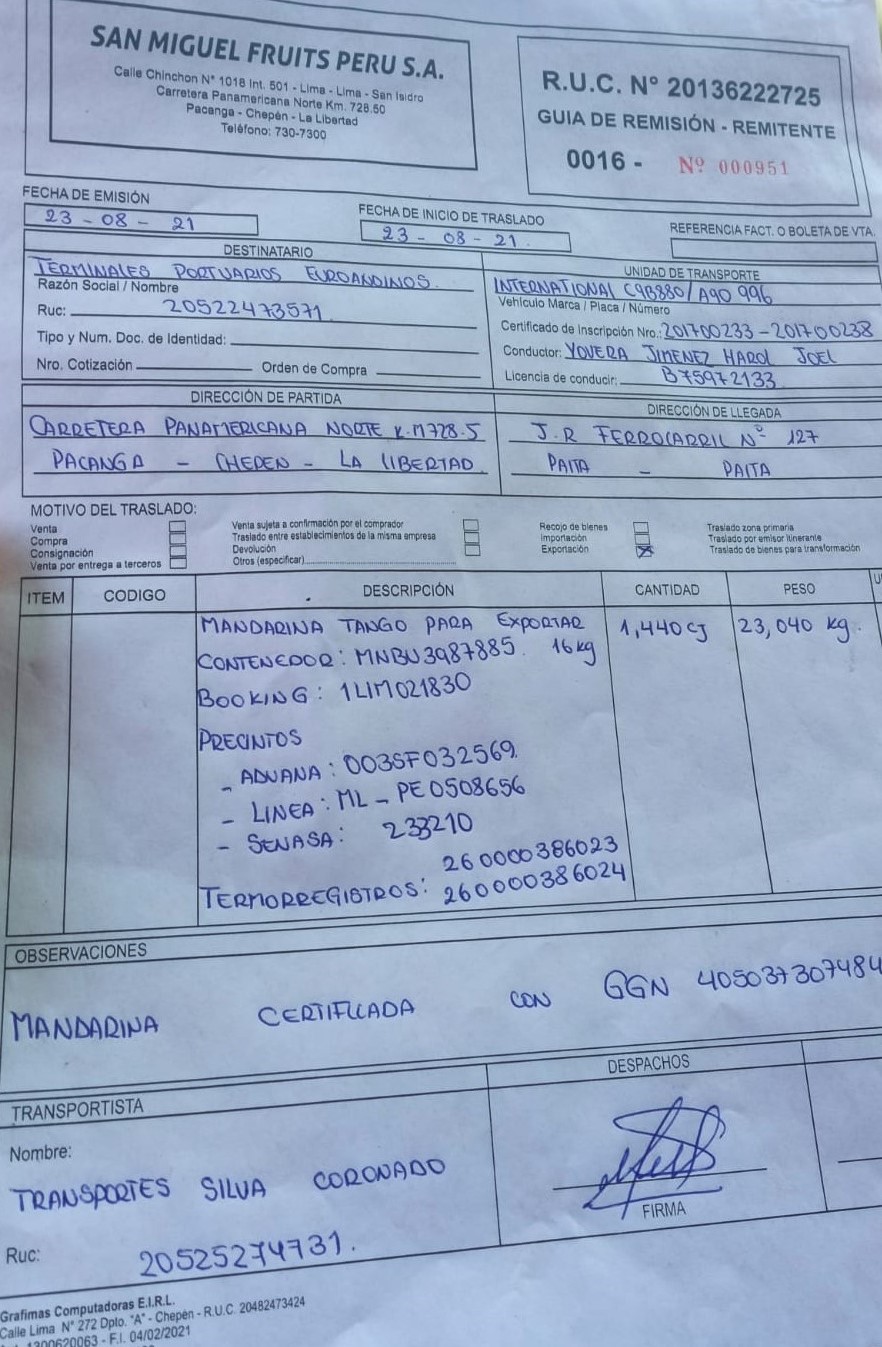 SAN MIGUEL FRUITS PERU S.A.
Calle Chinchon N° 1018 Int. 501 - Lima - Lima - San Isidro
Carretera Panamericana Norte Km. 728.50
Pacanga - Chepén - La Libertad
Teléfono: 730-7300
R.U.C. N° 20136222725
GUIA DE REMISIÓN - REMITENTE
0016 - Nº 000951
FECHA DE EMISIÓN
23 - 08 - 21
FECHA DE INICIO DE TRASLADO
23 - 08 - 21.
REFERENCIA FACT. O BOLETA DE VTA.
DESTINATARIO
TERMINALES PORTUARIOS EUROANDINOS.
Razón Social / Nombre
Ruc: 20522473571
Tipo y Num. Doc. de Identidad:
Nro. Cotización Orden de Compra
UNIDAD DE TRANSPORTE
INTERNATIONAL C9B880/A90 996
Vehículo Marca / Placa / Número
Certificado de Inscripción Nro.: 201700233-201700238
Conductor: YOVERA JIMENEZ HAROL JOEL
Licencia de conducir: B75972133
DIRECCIÓN DE PARTIDA
CARRETERA PANAMERICANA NORTE K.M728.5
PACANGA - CHEPEN - LA LIBERTAD
DIRECCIÓN DE LLEGADA
J.R FERROCARRIL Nº 127
PAITA - PAITA
MOTIVO DEL TRASLADO:
Venta
Compra
Consignación
Venta por entrega a terceros
Venta sujeta a confirmación por el comprador
Traslado entre establecimientos de la misma empresa
Devolución
Otros (especificar)
Recojo de bienes
Importación
Exportación X
Traslado zona primaria
Traslado por emisor itinerante
Traslado de bienes para transformación
ITEM CODIGO DESCRIPCIÓN CANTIDAD PESO
MANDARINA TANGO PARA EXPORTAR 1,440 CJ 23,040 kg.
CONTENEDOR: MNBU3987885. 16kg
BOOKING: 1LIM021830
PRECINTOS
- ADUANA: 003SF032569.
- LINEA: ML - PE0508656
- SENASA: 233210
260000386023
TERMORREGISTROS: 260000386024
OBSERVACIONES
MANDARINA CERTIFICADA CON GGN 405037307484
TRANSPORTISTA
Nombre:
TRANSPORTES SILVA CORONADO
Ruc: 20525274731.
DESPACHOS
FIRMA
Grafimas Computadoras E.I.R.L.
Calle Lima N° 272 Dpto. "A" - Chepén - R.U.C. 20482473424
1300620063 - F.I. 04/02/2021